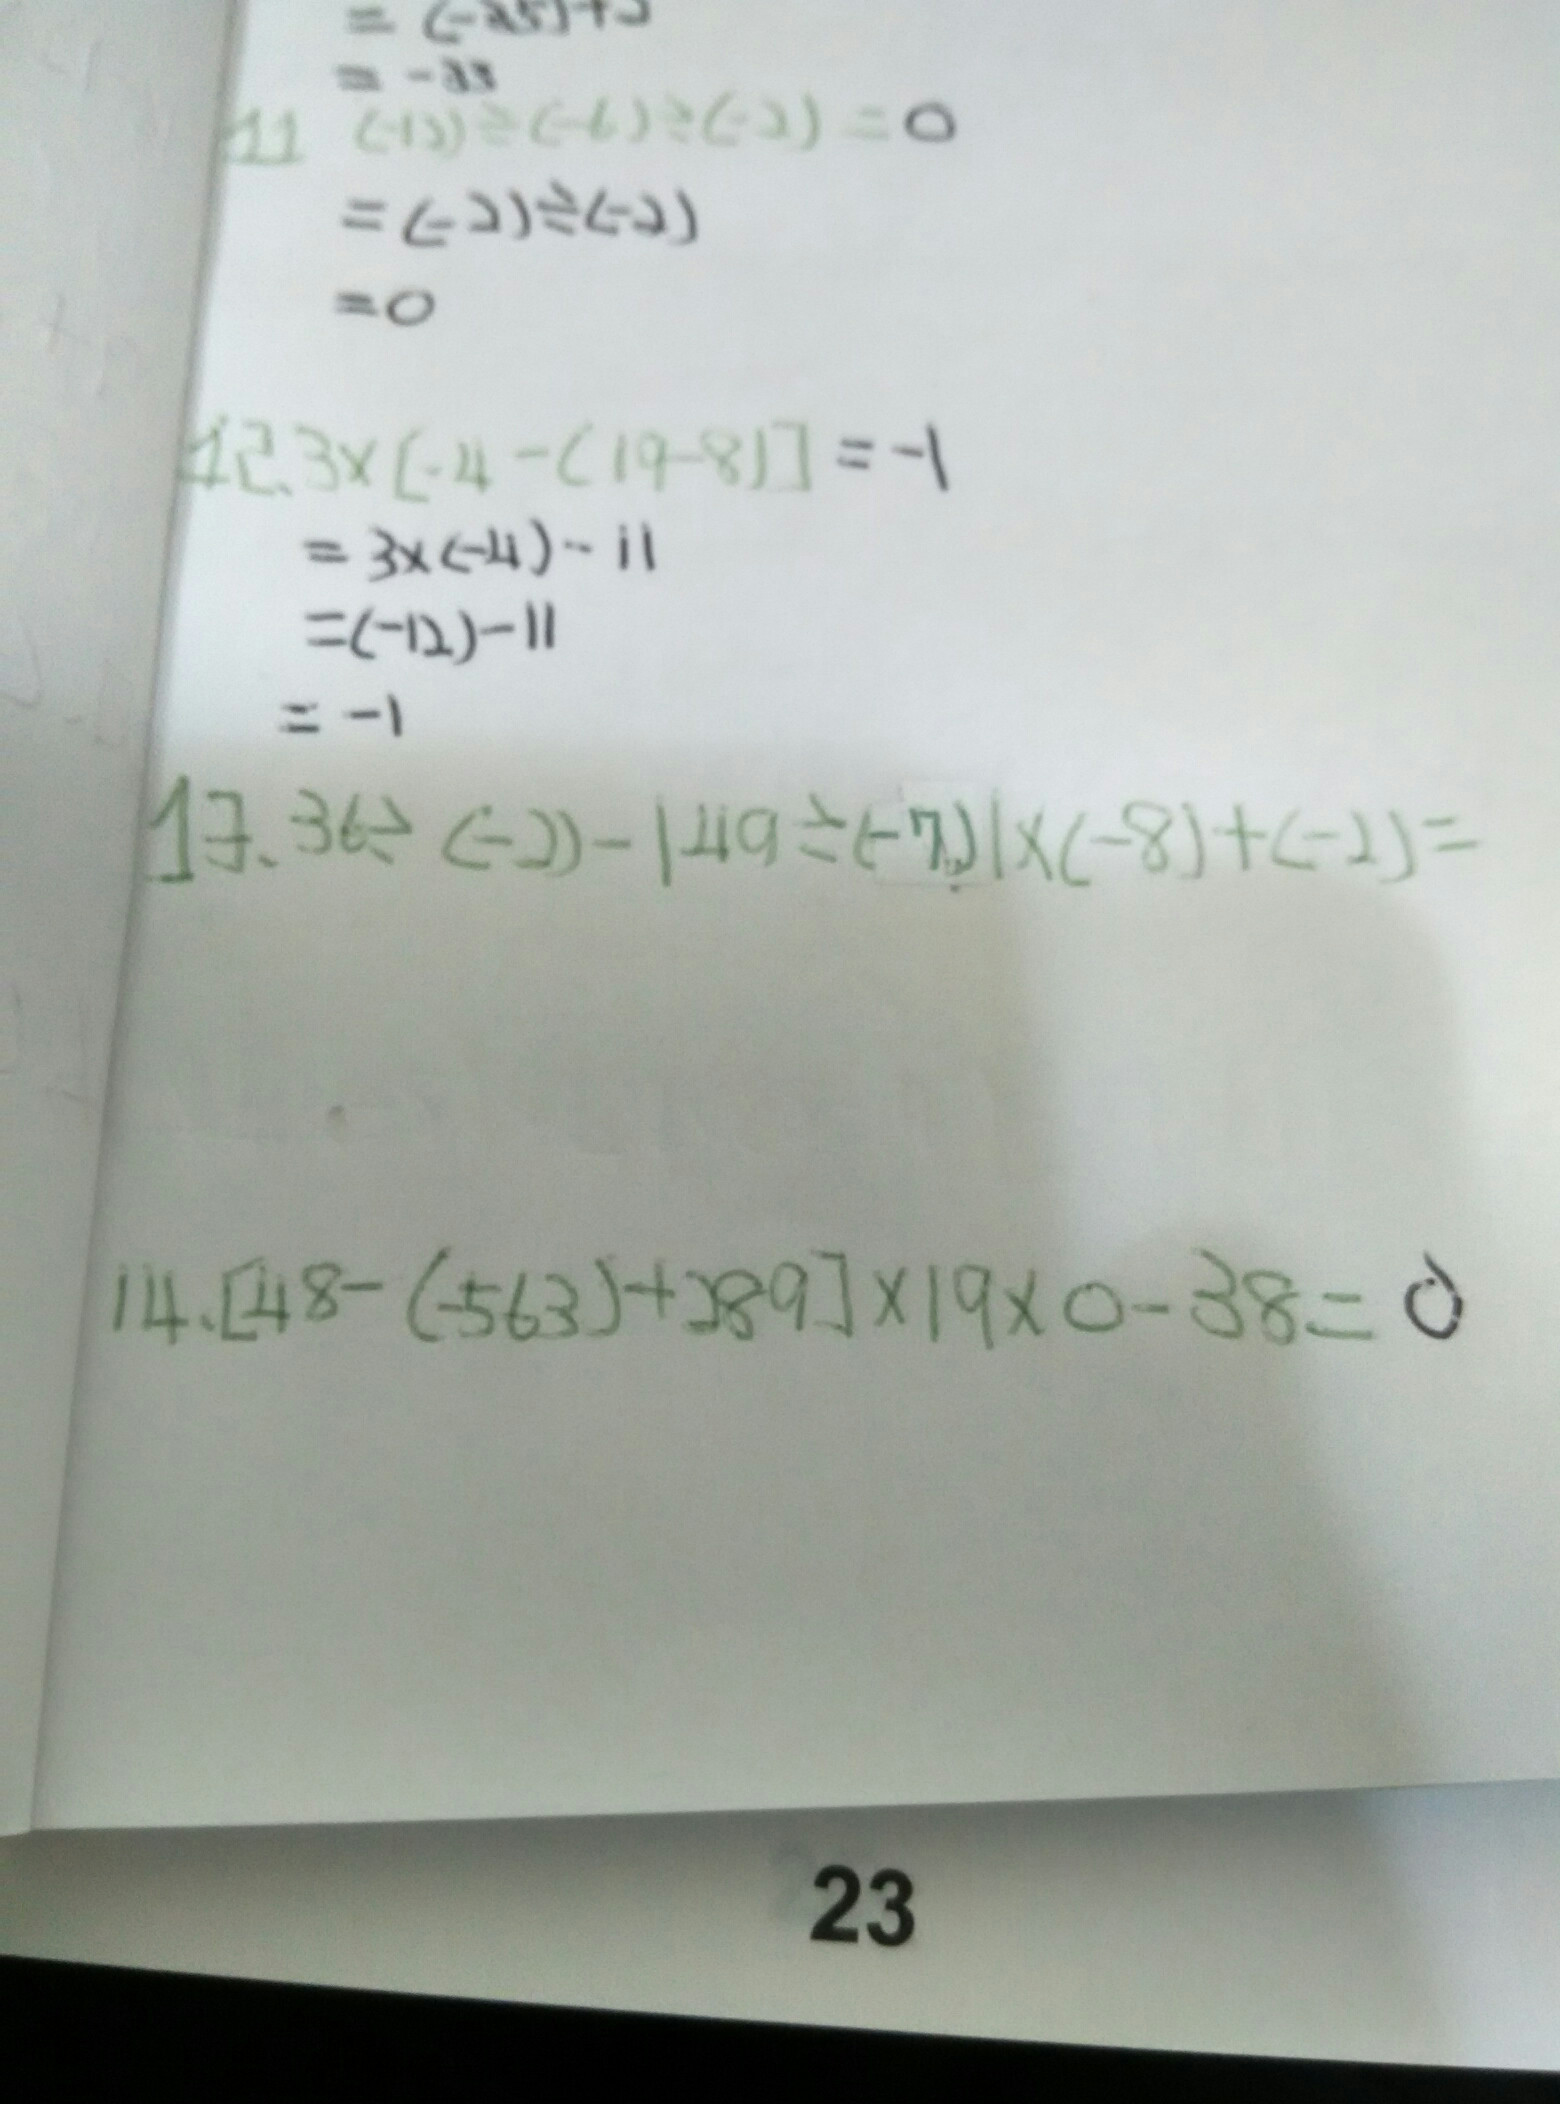 = -33
11 (-12)÷(-6)÷(-2) = 0
= (-2)÷(-2)
=0
12. 3×[-4-(19-8)] = -1
= 3×(-4)-11
=(-12)-11
= -1
13. 36÷(-2)-|49÷(-7)|×(-8)+(-2)=
14. [48-(-563)+289]×19×0-38= 0
23